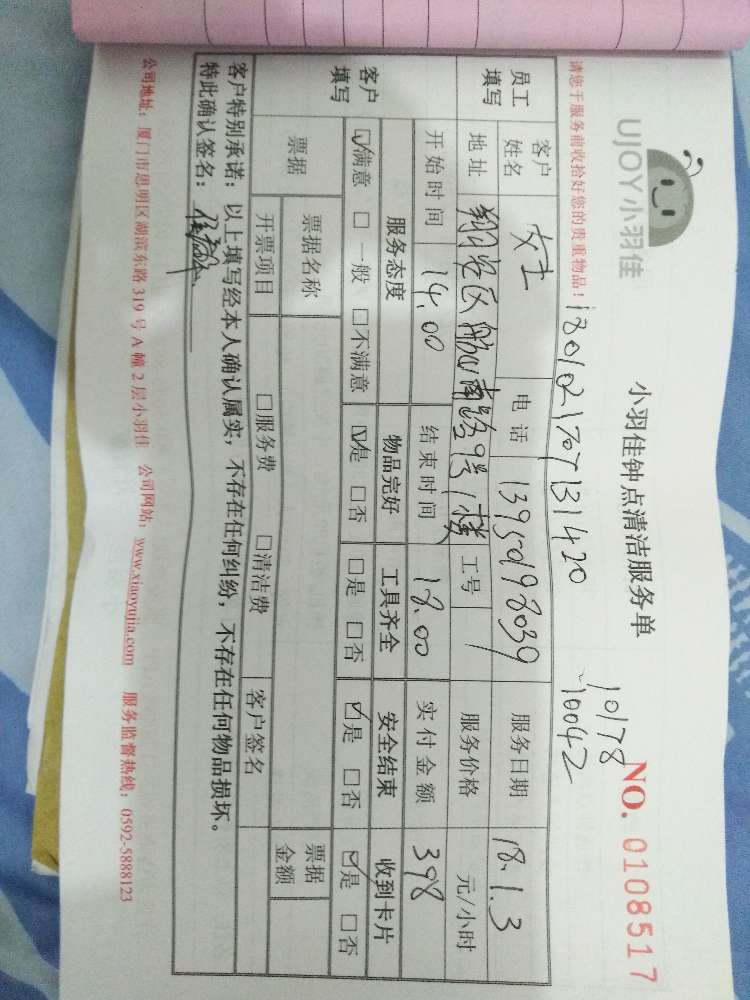 UJOY小羽佳
小羽佳钟点清洁服务单
NO. 0108517
10178
10042
请您于服务前收拾好您的贵重物品！
1801021707131420
员工填写 客户姓名 女士 电话 13950198039 服务日期 18.1.3
地址 翔安区 南路9号1楼 工号 服务价格 元/小时
客户填写 开始时间 14.00 结束时间 18.00 实付金额 398
服务态度 物品完好 工具齐全 安全结束 收到卡片
☑满意 □一般 □不满意 ☑是 □否 □是 □否 ☑是 □否 ☑是 □否
票据 票据名称 票据金额
开票项目 □服务费 □清洁费 客户签名
客户特别承诺：以上填写经本人确认属实，不存在任何纠纷，不存在任何物品损坏。
特此确认签名：
公司地址：厦门市思明区湖滨东路319号A幢2层小羽佳 公司网站：www.xiaoyujia.com 服务监督热线：0592-5888123